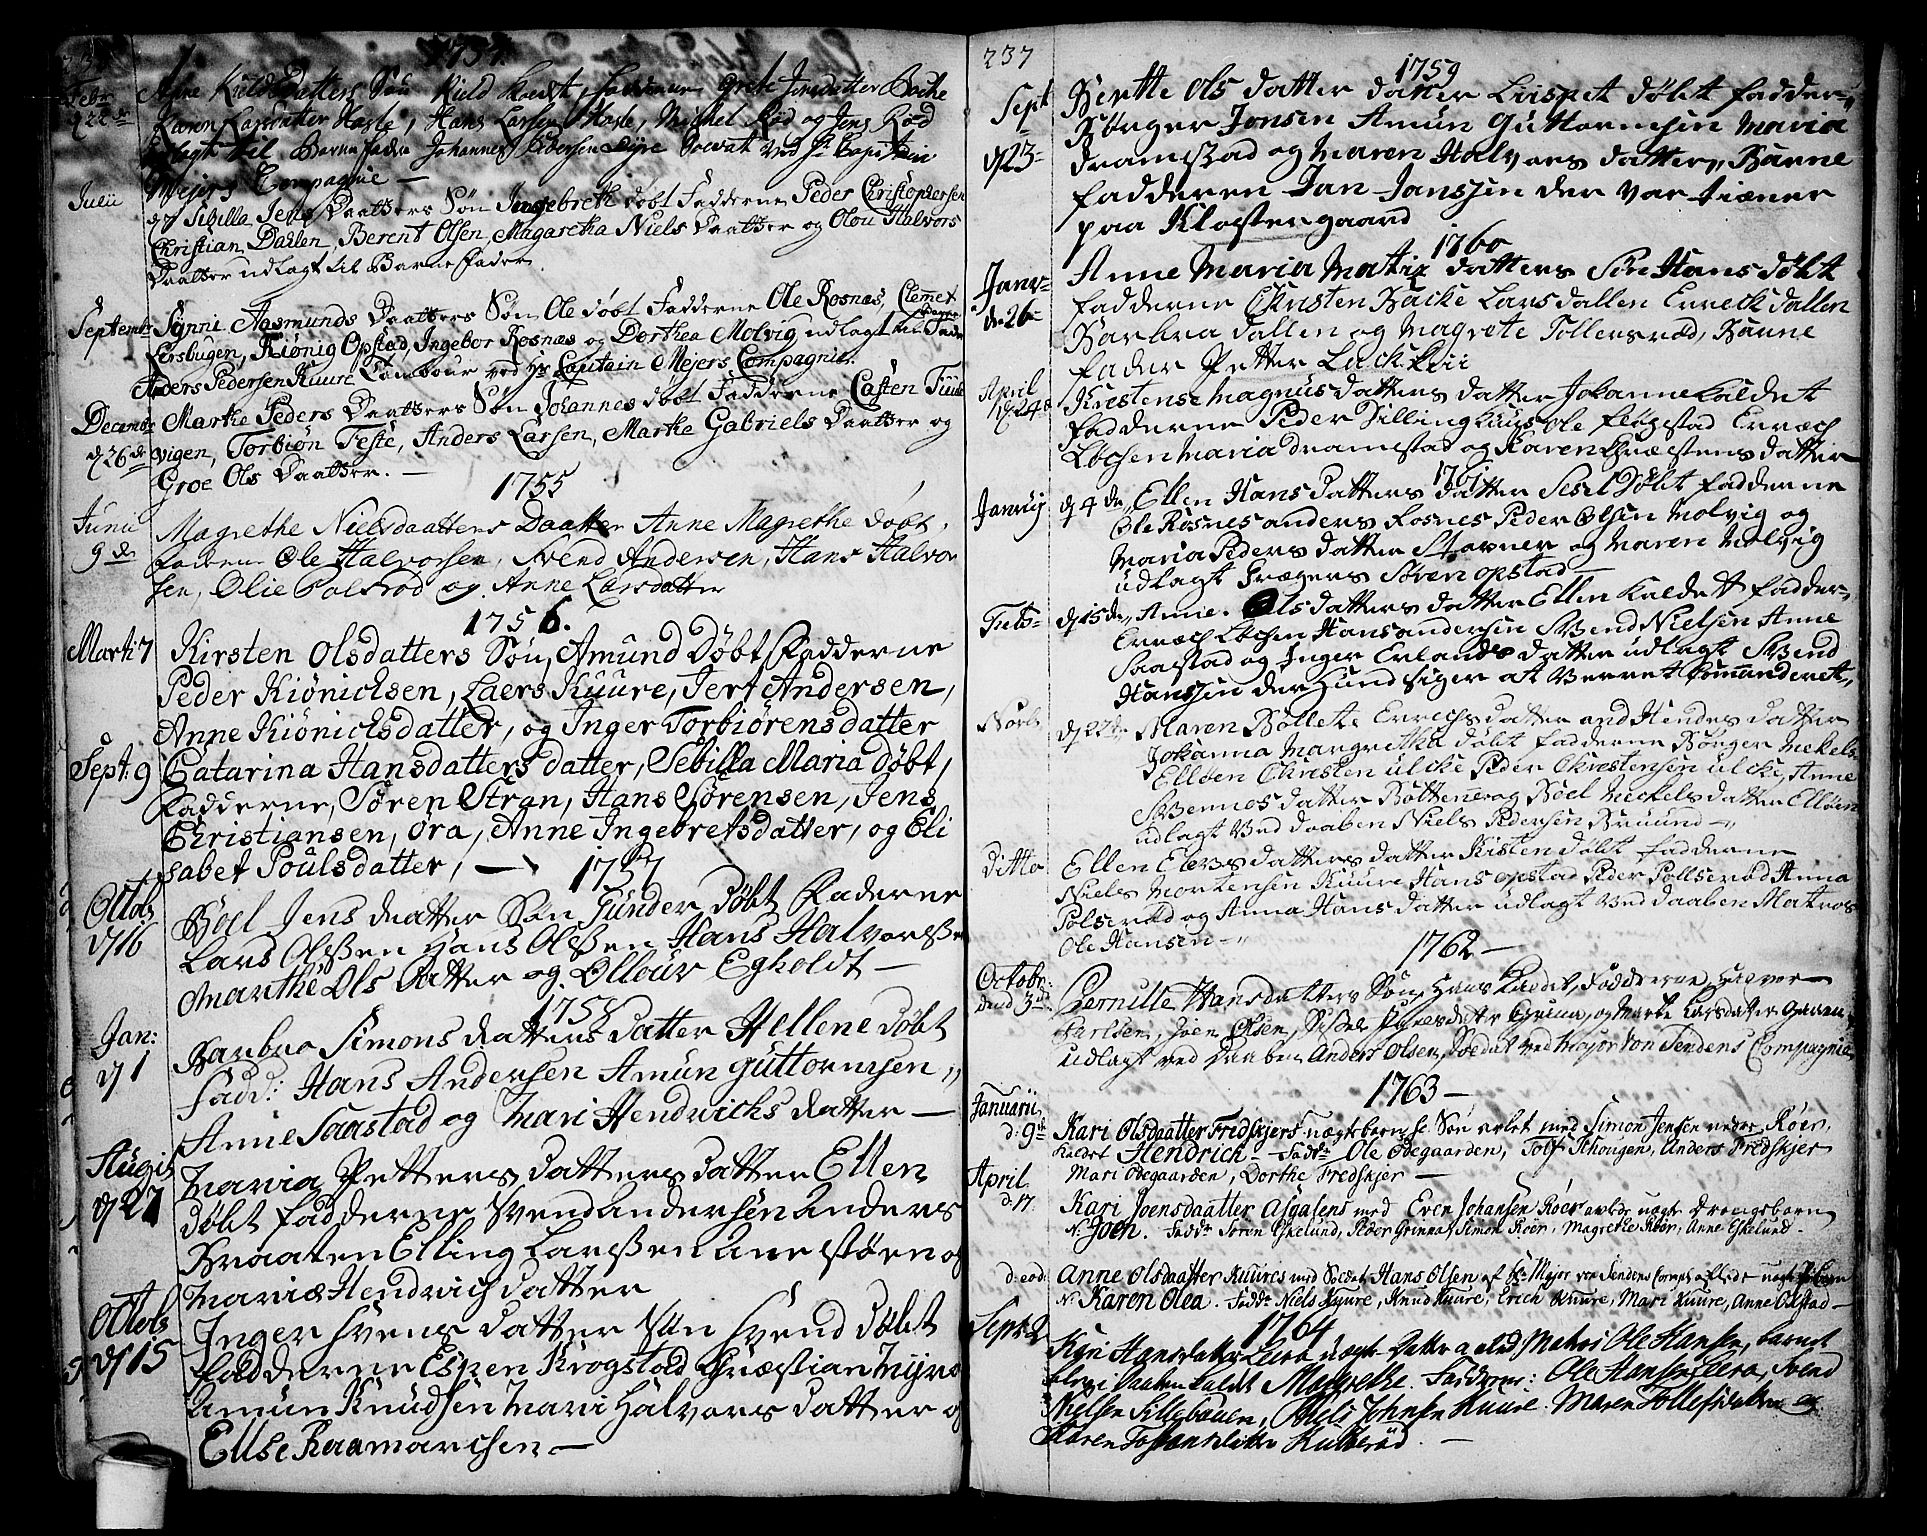 1754.
Febr
d 22de
Karen Larsdatter Hasle, Hans Larsen Hasle, Michel Rød og Jens Rød
udlagt til Barne fader Johannes Pedersen Soldat ved Hr Capitain
Mejers Compagnie —
Julii
d 7 Sibilla Jens Daatters Søn Ingebreth døbt Fadderne Peder Christophersen
Christian Dahlen, Berent Olsen, Magaretha Niels Daatter og Olou Halvors
Daatter udlagt til Barne Fader
Septembr Synni Aasmunds Daatters Søn Ole døbt Fadderne Ole Rosnæs, Clemet
Lersbugen, Kiönig Opstad, Ingebor Rosnæs og Dorthea Molvig udlagt til Fader
Peders Pedersen Kuure Tambour ved Hr Capitain Mejers Compagnie.
Decembr Marthe Peders Daatters Søn Johannes døbt Fadderne Casten Tiuf
d 26de vigen, Torbiön Teste, Anders Larsen, Marthe Gabriels Daatter og
Groe Ols Daatter. —
1755
Junii Magrethe Nielsdaatters Daatter Anne Magrethe døbt,
9de Faderne Ole Halvorsen, Svend Andersen, Hans Halvor
sen, Olie Polsrod og Anne Larsdatter
1756.
Marti 7 Kirsten Olsdatters Søn, Amund Døbt Fadderne
Peder Kiönichsen, Laers Kuure, Jert Andersen,
Anne Kiönichsdatter, og Inger Torbiörensdatter
Sept: 9 Catarina Hansdatters datter, Sebilla Maria døbt,
Fadderne, Søren Stran, Hans Sørensen, Jens
Christiansen, öra, Anne Ingebretsdatter, og Eli
sabet Poulsdatter, —
1757
Octob Boel Jens datter Søn Gunder Døbt Faderne
d 16 Lars Olssen Hans Olssen Hans Halvorsse
Marthe Ols Datter og Ollour Egholdt —
1758
Jan: Barbro Simons datters datter Hellene døbt
d 1 Fadd: Hans Andersen Amun Guttormsen,,
Anne Saastad og Mari Hendrichs datter —
Augst Maria Petters datters datter Ellen
d 27 Döbt fadderne Svend Andersen Anders
Braaten Elling Larssen Ane støen og
Maria Hendrich datter
Octob Inger Svens datter Sön Svend Döbt
d 15 fadderne Espen Krogstad Chrestian Myra
Amun Knudsen Mari Halvors datter og
Ellse Raamarchen —
237
1759
Sept Berthe Ols datter datter Lisspet döbt fadder,,
d 23 Börger Jonsen Amun Guttormsen Maria
dramstad og Maren Halvors datter,, Barne
fadderen Jan Janssen der var tiæner
paa Klostergaard
1760
Janv Anne Maria Matix datters Sön Hans döbt
d. 26 fadderne Christen Backe Lars dallen Errech dallen
Barbra dallen og Magrete Tollersrød, Barne
fader Petter Lack
April Kirstense Magnus datters datter Johanne kaldet
d 24 fadderne Peder Dilling Kuus Ole fløgstad Errech
Lochsen Maria dramstad og Karen Chrestens datter
1761
Januy d 4de,, Ellen Hans datters datter Sesel Döbt fadderne
Ole Rosnes anders Rosnes Peder Olsen Molvig og
Maria Peders datter Stavner og Maren Molvig
udlagt Søren opstad —
Feb d 15de,, Anne. Ols datters datter Ellen kaldet fadder,,
Errech Lochsen Hans andersen Svend Nielsen Anne
Saastad og Inger Erlands datter udlagt Svend
Hanssen der hund siger at verret Commanderet,,
Novb d 22de Maren Bollete Errichs datter and Hendes datter
Johanna Margretha döbt fadderne Börger Mekels
Elløen Christen ulcke Peder Chrestensen ulcke, Anne
Svennos datter Bottene og Boel Mickels datter Elløen
udlagt ved daaben Niels Pedersen Bruund —
Ditto Ellen Elevs datters datter Kirsten döbt fadderne
Niels Mortensen Kuure Hans opstad Peder Pollserød Anna
Polserød og Anna Hans datter udlagt ved daaben Matros
Ole Hansen —
1762 —
Octobr: Pernille Hansdatters Søn Hans kaldet, Fadderne, Halvor
dend 3de Karlsen, Joen Olsen, og Marthe Larsdatter Gaaren
udlagt ved Daaben Anders Olsen, Soldat ved Major Von Tendens Compagnie
1763 —
Januarii Kari Olsdaatter Fredskjers uægtebarn se Søn avlet med Simon Jensen nedre Röer,
d: 9de kaldet Hendrich — Faddr Ole Ödegaarden, Tolf Schougen, Anders Fredskjer
April Mari Ödegaarden, Dorthe Fredskjer —
d: 17. Kari Joensdaatter Asgalens med Even Johansen Röer avlede uægte Drengebarn
N: Joen. Faddr Søren Eskelund, Peder Grimna, Simon Röer, Magrethe Röer, Anne Eskelund.
d: eod: Anne Olsdaatter Kuures med Soldat Hans Olsen af Hr Major von Tendens Comp: avlede uægte
N: Karen Olea. Faddr Niels Kuure, Knud Kuure, Erich Kuure, Mari Kuure, Anne Oxstad —
1764
Sept: 2 Kari Hansdatter Leera uægte Datter avled Matros Ole Hansen, barnet
blev i Daaben kaldet Magrethe. Fadderne: Ole Hansen Leera, Svend
Nielsen Sillebauen, Niels Johnsen Kuure. Maren Tollefsdatter og
Karen Johansdatter Kulkerød. —